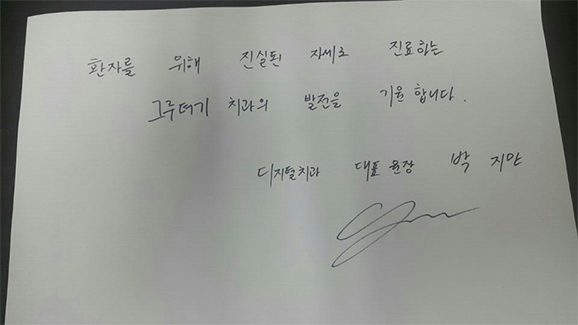 환자를 위해 진실된 자세로 진료하는
그루터기 치과의 발전을 기원 합니다.
디지털치과 대표 원장 박 지만